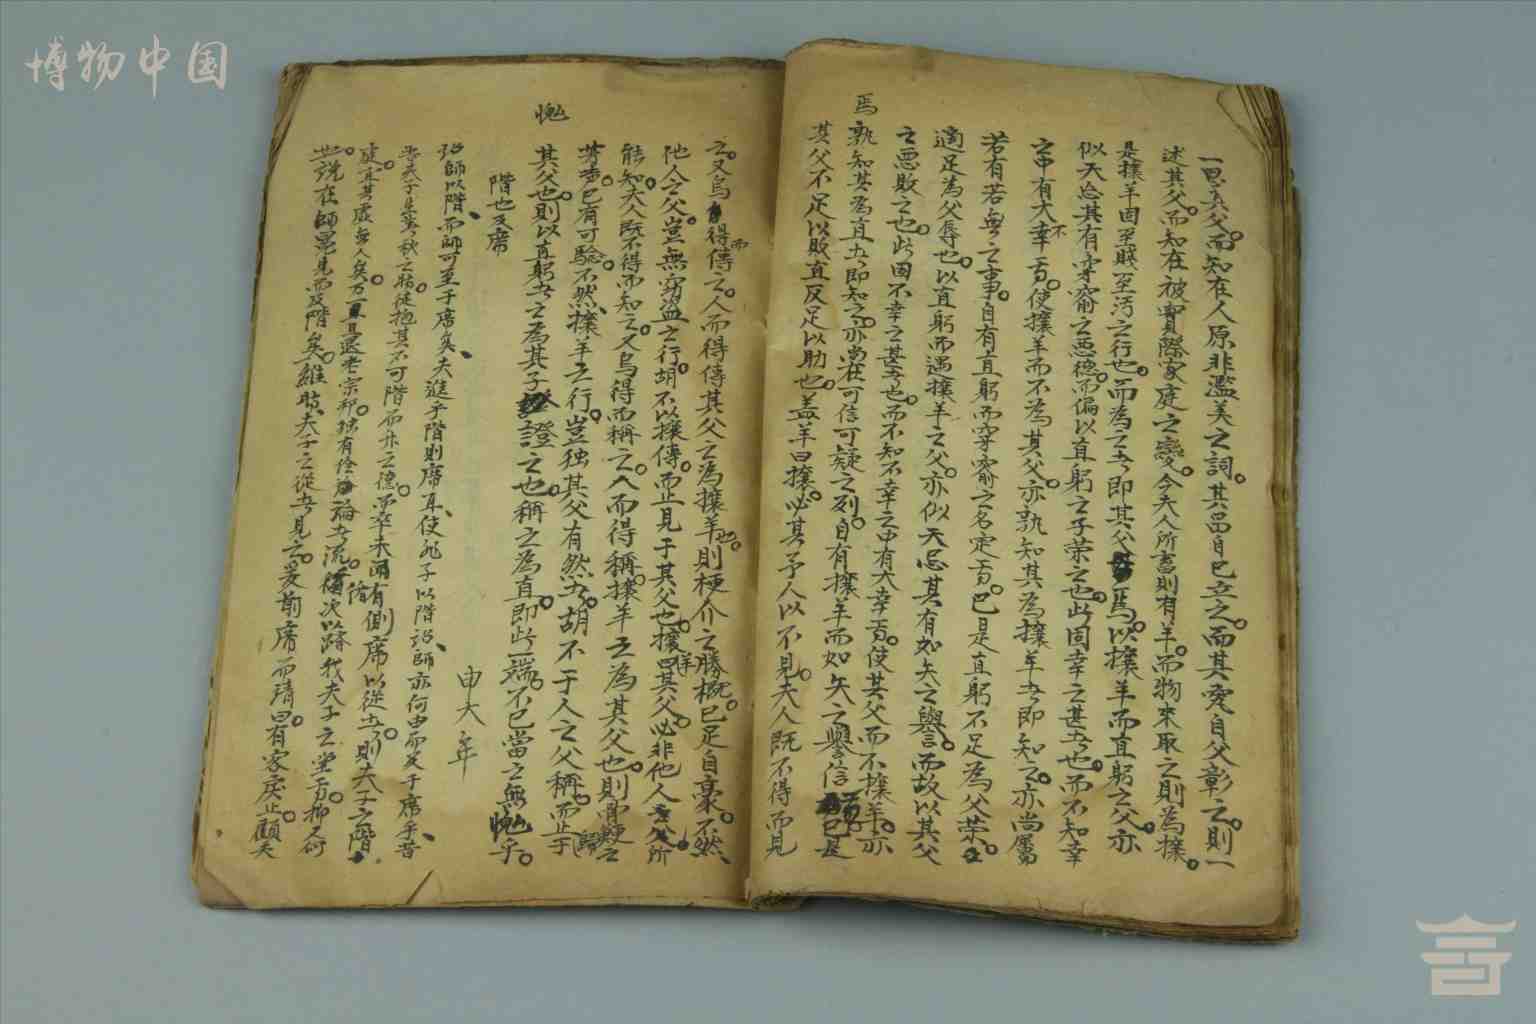 博物中国
一思其父而知在人原非濫美之詞其留自已立之而其愛自父彰之則一
述其父而知在被實際家庭之變今夫人所畜則有羊而物來取之則為攘
是攘羊固至賤至污之行也而為之者即其父焉以攘羊而直躬之父亦
似天忌其有穿窬之惡德而偏以直躬之子荣之也此固幸之甚者也而不知幸
之中有大不幸焉使攘羊而不為其父亦孰知其為攘羊者即知之亦尚屬
若有若無之事自有直躬而穿窬之名定焉已是直躬不足為父荣
適足為父辱也以直躬而遇攘羊之父亦似天忌其有如矢之譽而故以其父
之惡敗之也此固不幸之甚者也而不知不幸之中有大幸焉使其父而不攘羊亦
焉
孰知其為直者即知之亦尚在可信可疑之列自有攘羊而如矢之譽信已是
其父不足以敗直反足以助也蓋羊曰攘必其予人以不見夫人既不得而見
之又烏得而傳之人而得傳其父之為攘羊也則梗介之勝概已足自豪不然
他人之父豈無窃盗之行胡不以攘傳而止見于其父也攘羊曰其父必非他人之父所
能知夫人既不得而知之又烏得而稱之人而得稱攘羊之為其父也則骨鯁之
已有可驗不然攘羊之行豈独其父有然者胡不于人之父稱而止于
其父也則以直躬者之為其子證之也稱之為直即此一端不已當之無愧乎
愧
階也及席
申大年
詔師以階而師可至于席矣夫進乎階則席耳使孔子以階詔師亦何由而及于席乎昔
之階
世說在師冕見而及階矣維時夫子之從者見之爰前席而請曰有家庭止顧夫